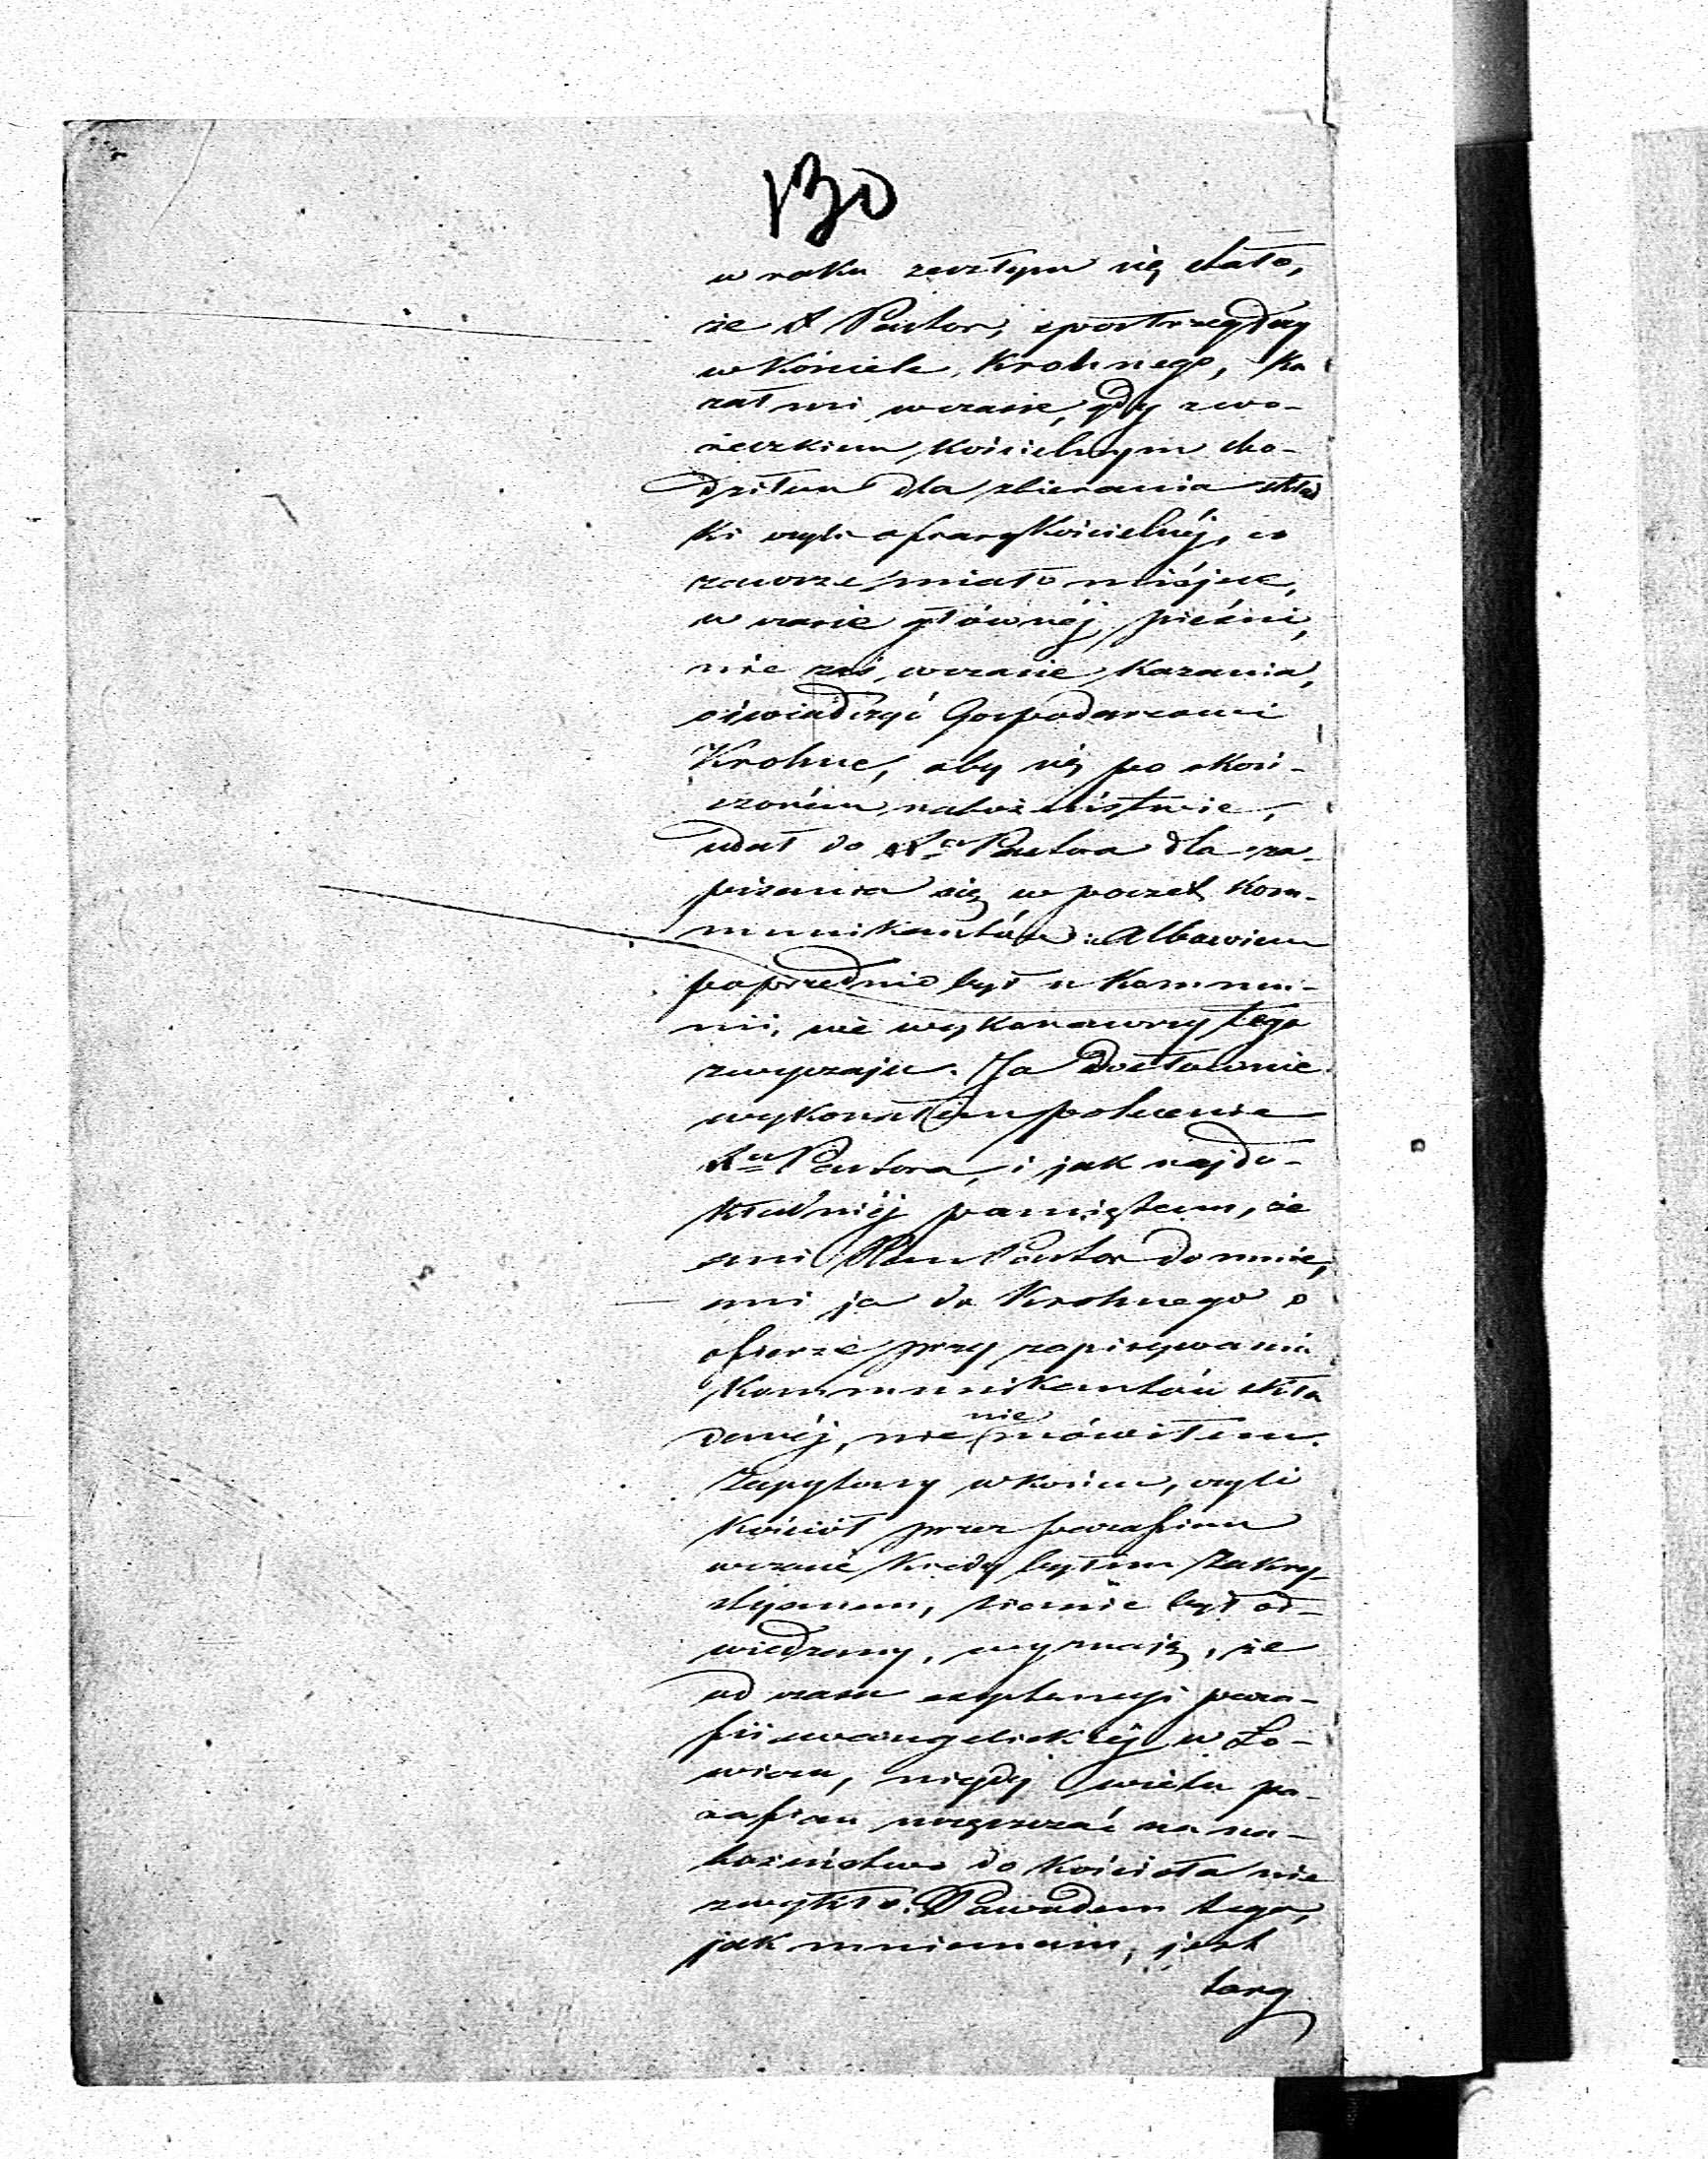 130
w roku zeszłym się stało,
że X Pastor, spostrzegłszy
w Kościele, Krohnego, Ka
zał mi wczasie, gdy z wo-
reczkiem Kościelnym cho-
dziłem dla zbierania skład
Ki czyli ofiary Kościelnéj, co
zawsze miało miéjsce,
w czasie głównéj pieśni,
nie zaś, wczasie Kazania,
oświadczyć Gospodarzowi
Krohne, aby się po skoń-
czoném nabożeństwie,
udał do Xa Pastora dla za-
pisania się w poczet Kom-
munikantów: Albowiem
poprzednio był u Kommu-
nii, nie wykonawszy tego
zwyczaju. Ja dosłownie
wykonałem polecenie
Xa Pastora, i jak najdo-
kładniéj pamiętam, że
ani Pan Pastor do mnie,
ani ja do Krohnego o
ofierze przy zapisywaniu
Kommunikantów skła
danéj, nie
nie mówiłem.
Zapytany w końcu, czyli
Kościół przez parafian
wczasie Kiedy byłem Zakry-
styanem, licznie był od-
wiedzany, wyznaję, że
od czasu para-
fii ewangelickiéj w Ło-
wiczu, nigdy wielu pa-
rafian uczęszczać na na-
bożeństwo do Kościoła nie
zwykło. Powodem tego,
jak mniemam, jest
targ